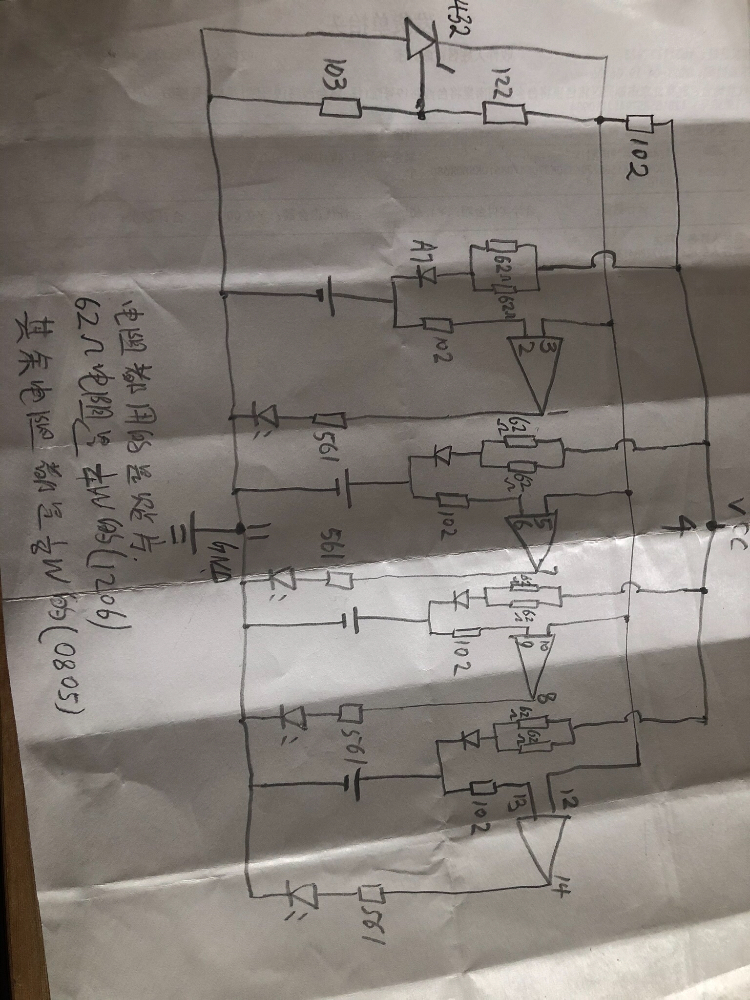 VCC
4
102
432
122
103
62Ω
62Ω
A7
102
3
2
1
561
62Ω
62Ω
102
5
6
7
561
62Ω
62Ω
102
10
9
8
561
62Ω
62Ω
102
12
13
14
561
11
GND
电阻都用的是贴片.
62Ω电阻是¼W的(1206)
其余电阻都是⅛W的(0805)